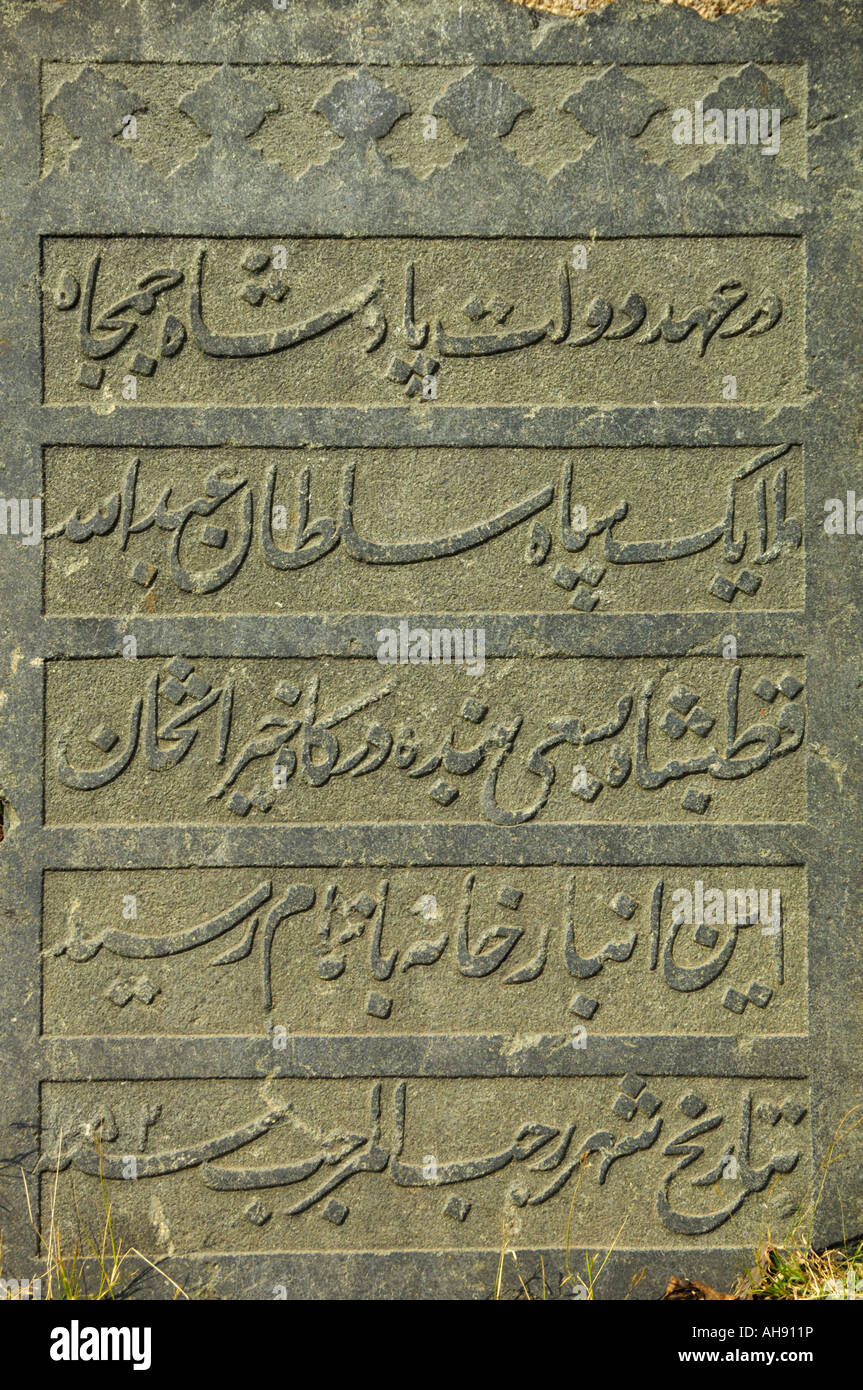 در عهد دولت پادشاه جمجاه
ملایک سپاه سلطان عبدالله
قطبشاه بسعی بنده درگاه خیراتخان
این انبارخانه باتمام رسید
بتاریخ شهر رجب المرجب سنه
alamy stock photo
AH911P
www.alamy.com